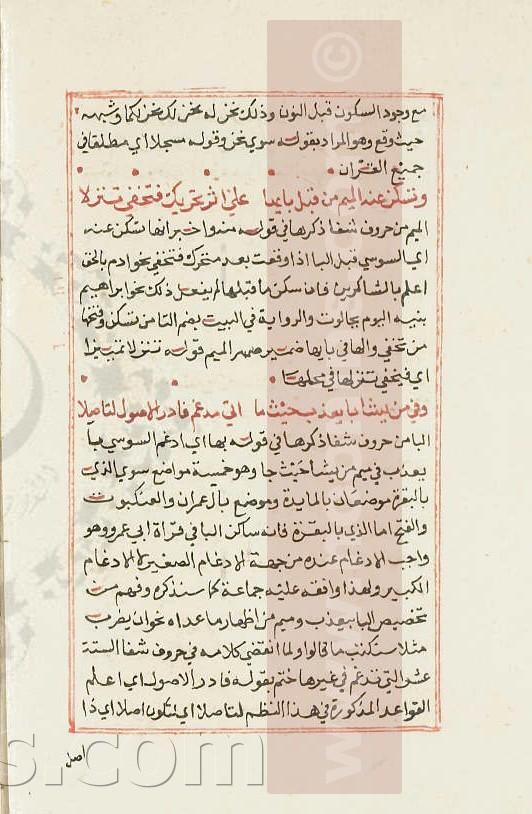 مع وجود السكون قبل النون وذلك نحن له نحن لك نحن لكما وشبهه
حيث وقع وهو المراد بقوله سوى نحن وقوله مسجلا اي مطلقا في
جميع القران
وتسكن عنه الميم من قبل بائها على اثر تحريك فتخفى تنزلا
الميم من حروف شفا ذكرها في قوله منه واخبر انها تسكن عنه
اي السوسي قبل البا اذا وقعت بعد متحرك فتخفى نحو ادم بالحق
اعلم بالشاكرين فان سكن ما قبلها لم يفعل ذلك نحو ابراهيم
بنيه اليوم بجالوت والرواية في البيت بضم التا من تسكن وفتحها
من تخفى والها في بايها ضمير الميم قوله تنزلا تمييزا
اي فيخفى تنزلها في محلها
وفي من يشا با يعذب حيث ما اتى مدغم فادر الاصول لتاصلا
البا من حروف شفا ذكرها في قوله بها اي ادغم السوسي با
يعذب في ميم من يشا حيث جا وهو خمسة مواضع سوى الذي
بالبقرة موضعان بالمايدة وموضع بآل عمران والعنكبوت
والفتح اما الذي بالبقرة فانه ساكن البا في قراة ابي عمرو وهو
واجب الادغام عنده من جهة الادغام الصغير لا الادغام
الكبير ولهذا وافقه عليه جماعة كما سنذكره وفهم من
تخصيص البا بيعذب وميم من اظهار ما عداه نحو ان يضرب
مثلا سنكتب ما قالوا ولما انقضى كلامه في حروف شفا الستة
عشر التي تدغم في غيرها ختم بقوله فادر الاصول اي اعلم
القواعد المذكورة في هذا النظم لتاصلا اي لتكون اصلا اي ذا
اصل
www.
s.com
©